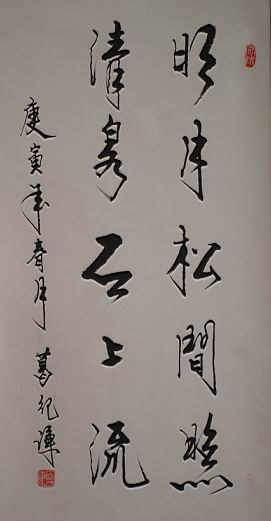 明月松間照
清泉石上流
庚寅年春月 葛紀謙